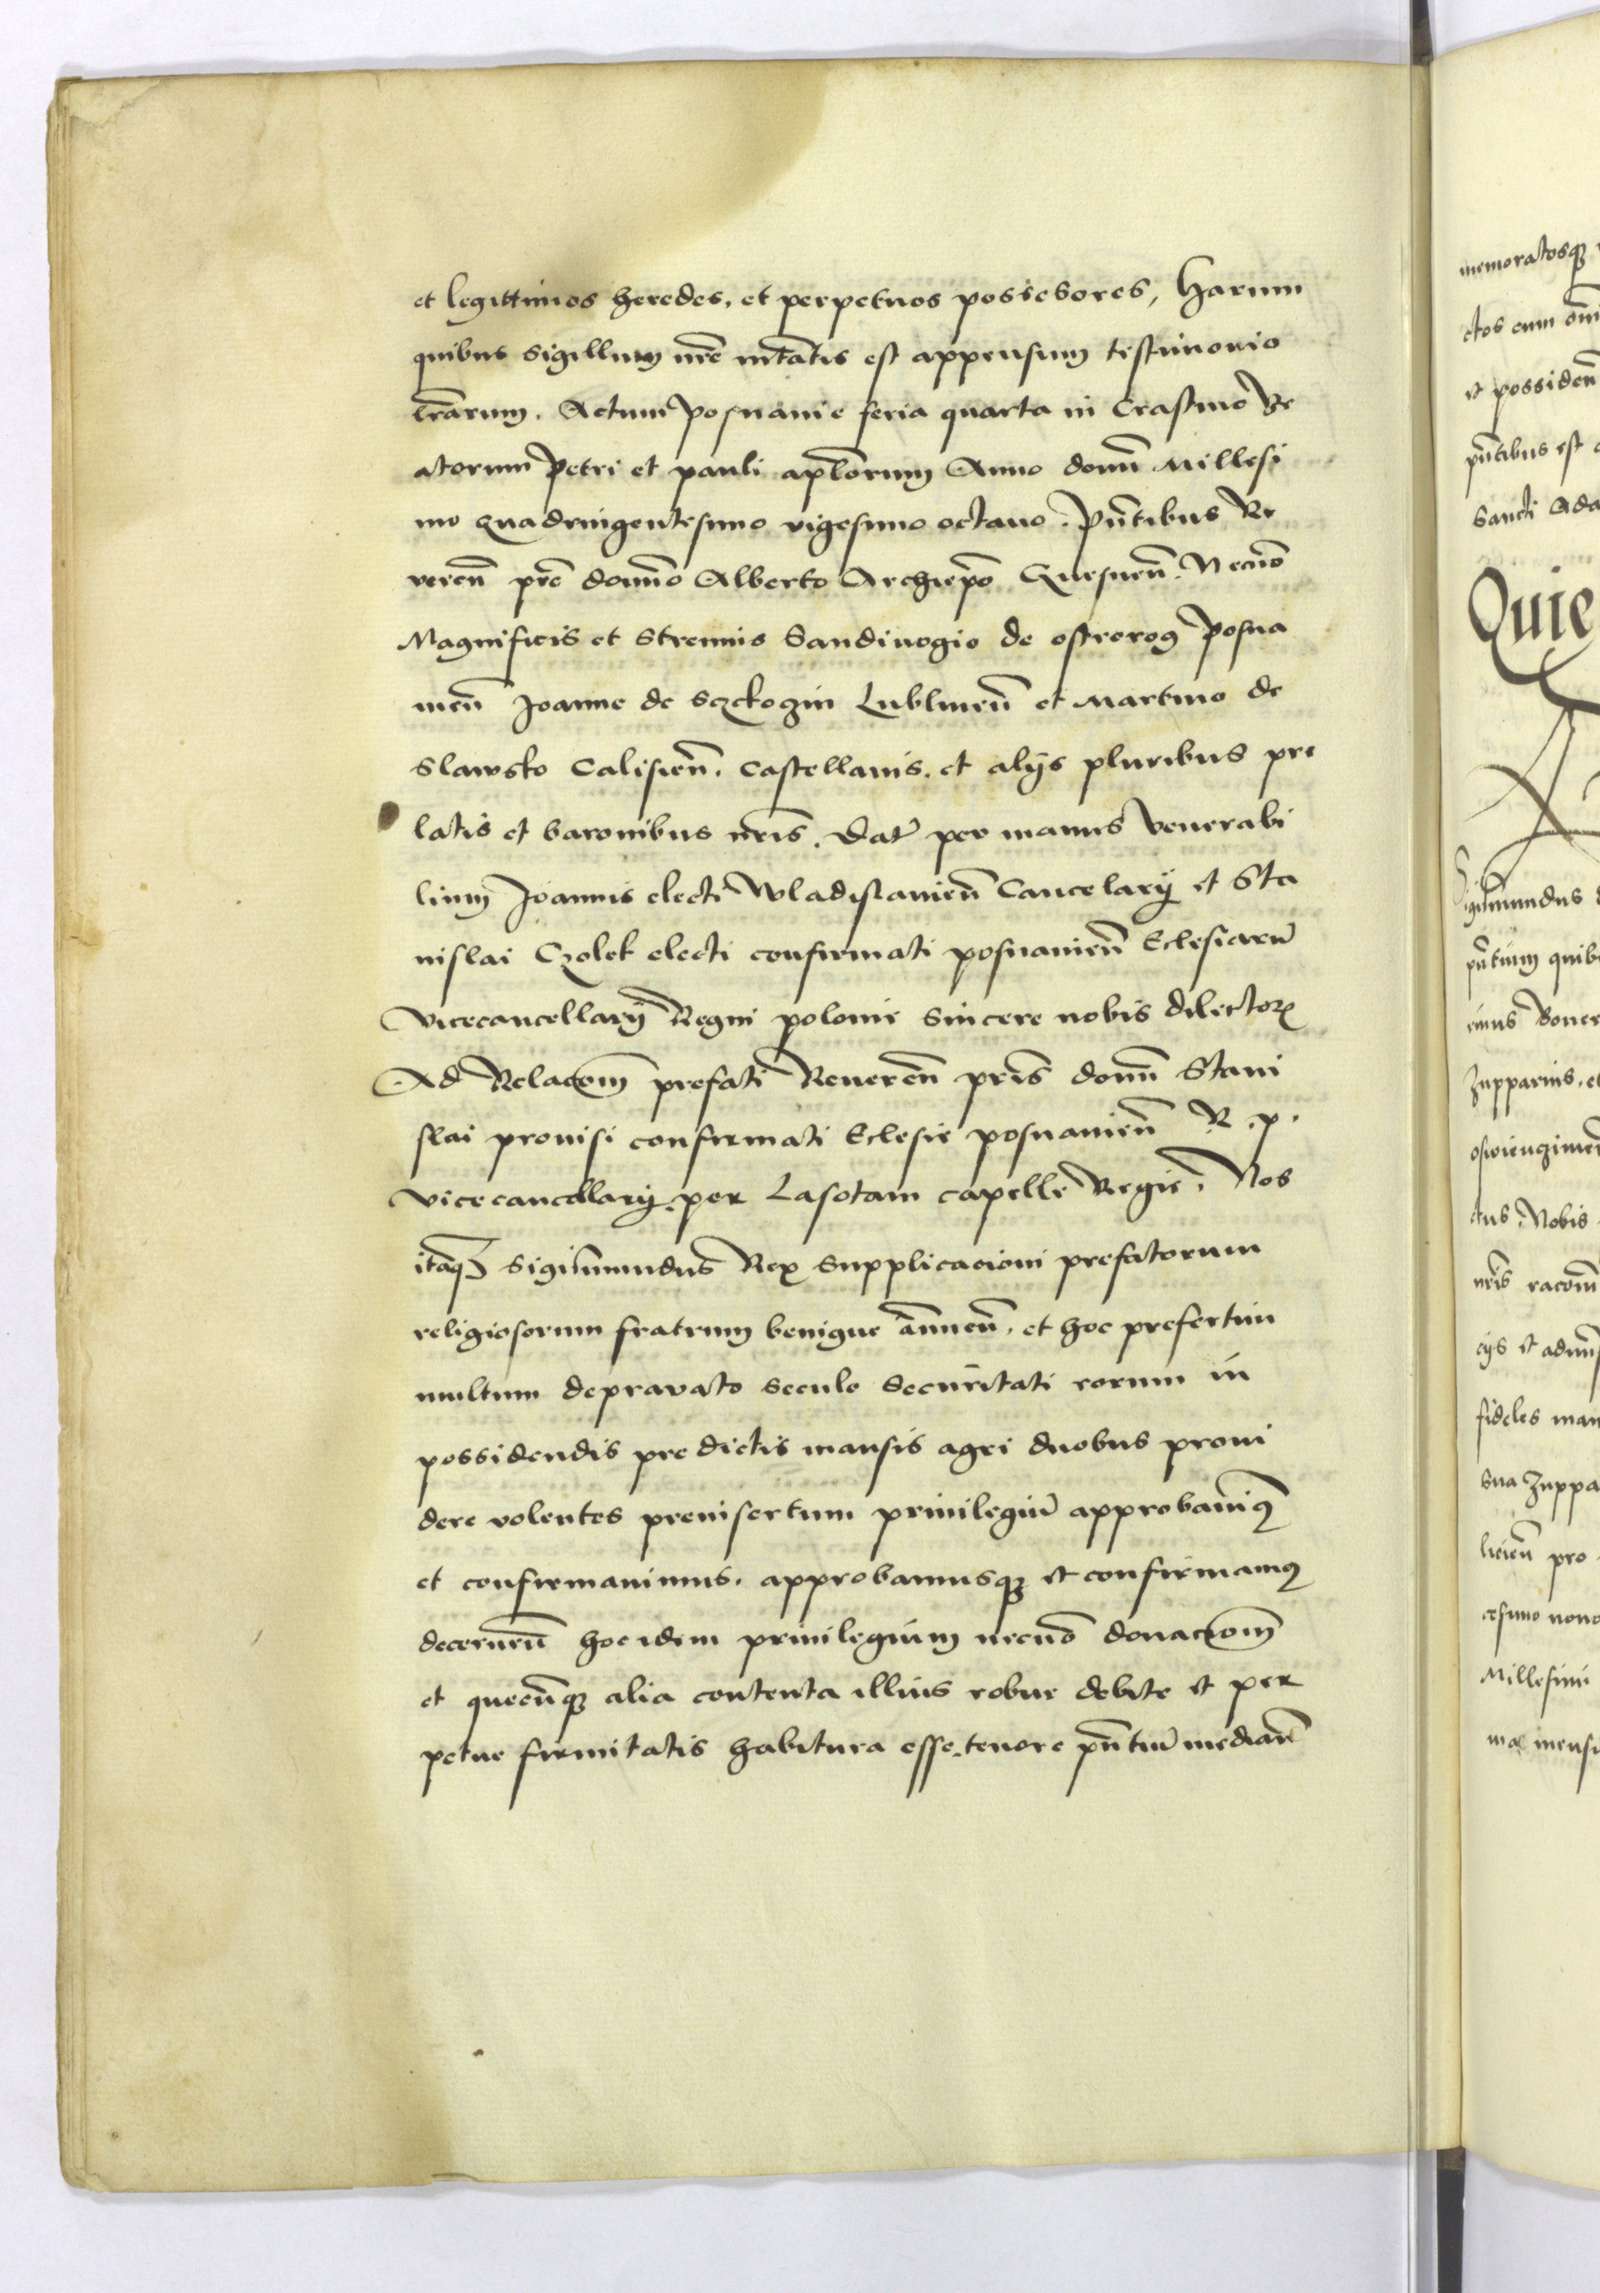 et legittimos heredes, et perpetuos possesores, Harum
quibus sigillum nr̄e mtātis est appensum testimonio
lr̄arum. Actum Posnanie feria quarta in Crastino Be
atorum Petri et pauli aplōrum Anno domī Millesi
mo quadringentesimo vigesimo octauo. Pn̄tibus Re
verēn pr̄e domīno Alberto Archiepō Gnesnen̄. Necnō
Magnificis et strenuis Sandiuogio de ostrorog Posna
nien̄ Joanne de Sczekoczin Lublinen̄ et Martino de
Slawsko Calisien̄. Castellanis. et alijs pluribus pre
latis et baronibus nr̄is. Dat̄ per manus Venerabi
lium Joannis electi Wladislauien̄ Cancelarij et Sta
nislai Czolek electi confirmati posnanien̄ Eclesiarū
Vicecancellarij Regni polonie sincere nobis dilectorꝝ
Ad Relacōem prefati Reueren̄ pr̄is domī Stani
slai prouisi confirmati Eclesie posnanien̄ R. p.
Vicecancellarij. per Lasotam capelle Regie. Nos
itaqꝫ Sigismundus Rex supplicacioni prefatorum
religiosorum fratrum benigne ānuen̄. et hoc presertim
multum deprauato seculo securitati eorum in
possidendis pre dictis mansis agri duobus proui
dere volentes preinsertum priuilegiū approbauimꝰ
et confirmauimus. approbamusqꝫ et confirmamꝰ
decernen̄ hoc idem priuilegium necnō donacōem
et quecūqꝫ alia contenta illius robur debite et per
petue firmitatis habitura esse. tenore pn̄tiū median̄
memoratosqꝫ
ctos cum omī
et possiden̄
pn̄tibus est
Sancti Ada
Quie
Sigismundus
pn̄tium quib
Zupparius. et
tus. Nobis
nr̄is racōem
fideles man
sua Zuppa
licien̄ pro
cesimo nono
Millesimi